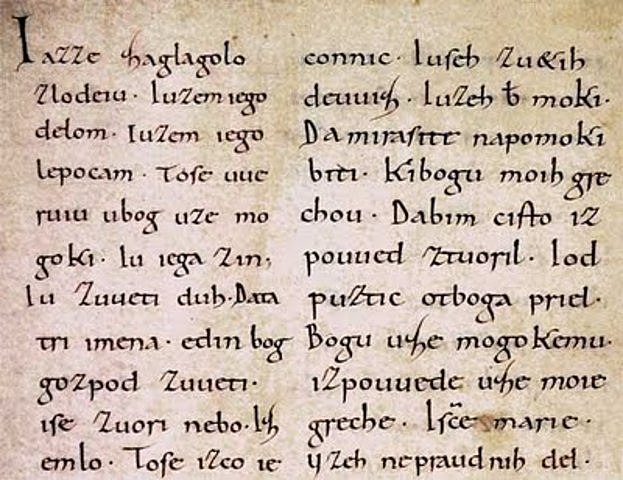 Iazze zaglagolo
zlodeiu. Iuzem iego
delom. Iuzem iego
lepocam. Tose uue
ruiu ubog uze mo
goki. Iu iega zin;
Iu zuueti duh. Data
tri imena. edin bog
gozpod zuueti.
ise zuori nebo. Iz
emlo. Tose izco ie
connic. Iuseh zu&ih
deuuiz. Iuzeh ƀ moki.
Da mirastte napomoki
biti. Kibogu moih gre
chou. Dabim cisto iz
pouued ztuoril. Iod
puztic otboga priel.
Bogu uze mogokemu.
izpouuede uze moie
greche. Isce marie.
uzeh nepraudnih del.